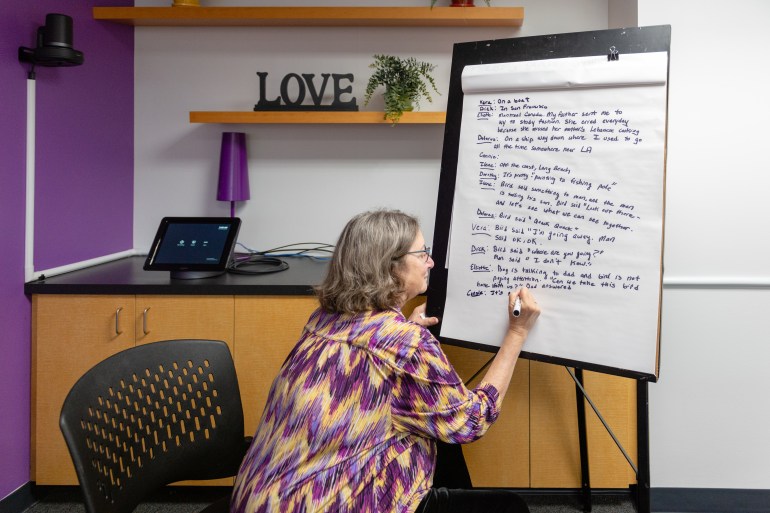 LOVE
Vera: On a boat
Dick: In San Francisco
Montreal Canada. My father sent me to
NY to study fashion. She cried everyday
because she missed her mother's Lebanese cooking
Dolores: On a ship way down where I used to go
all the time somewhere near LA
Connie:
Irene: Off the coast, Long Beach
Dorothy: It's pretty "pointing to fishing pole"
Irene: Bird said something to man, and the man
is eating his ear. Bird said "Look out there -
and let's see what we can see together.
Dolores: Bird said "Quack Quack"
Vera: Bird said "I'm going away. Man
said OK, OK.
Dick: Bird said "where are you going?"
Man said "I don't know."
Boy is talking to dad and bird is not
paying attention. "Can we take this bird
home with us?" Dad answered
It's